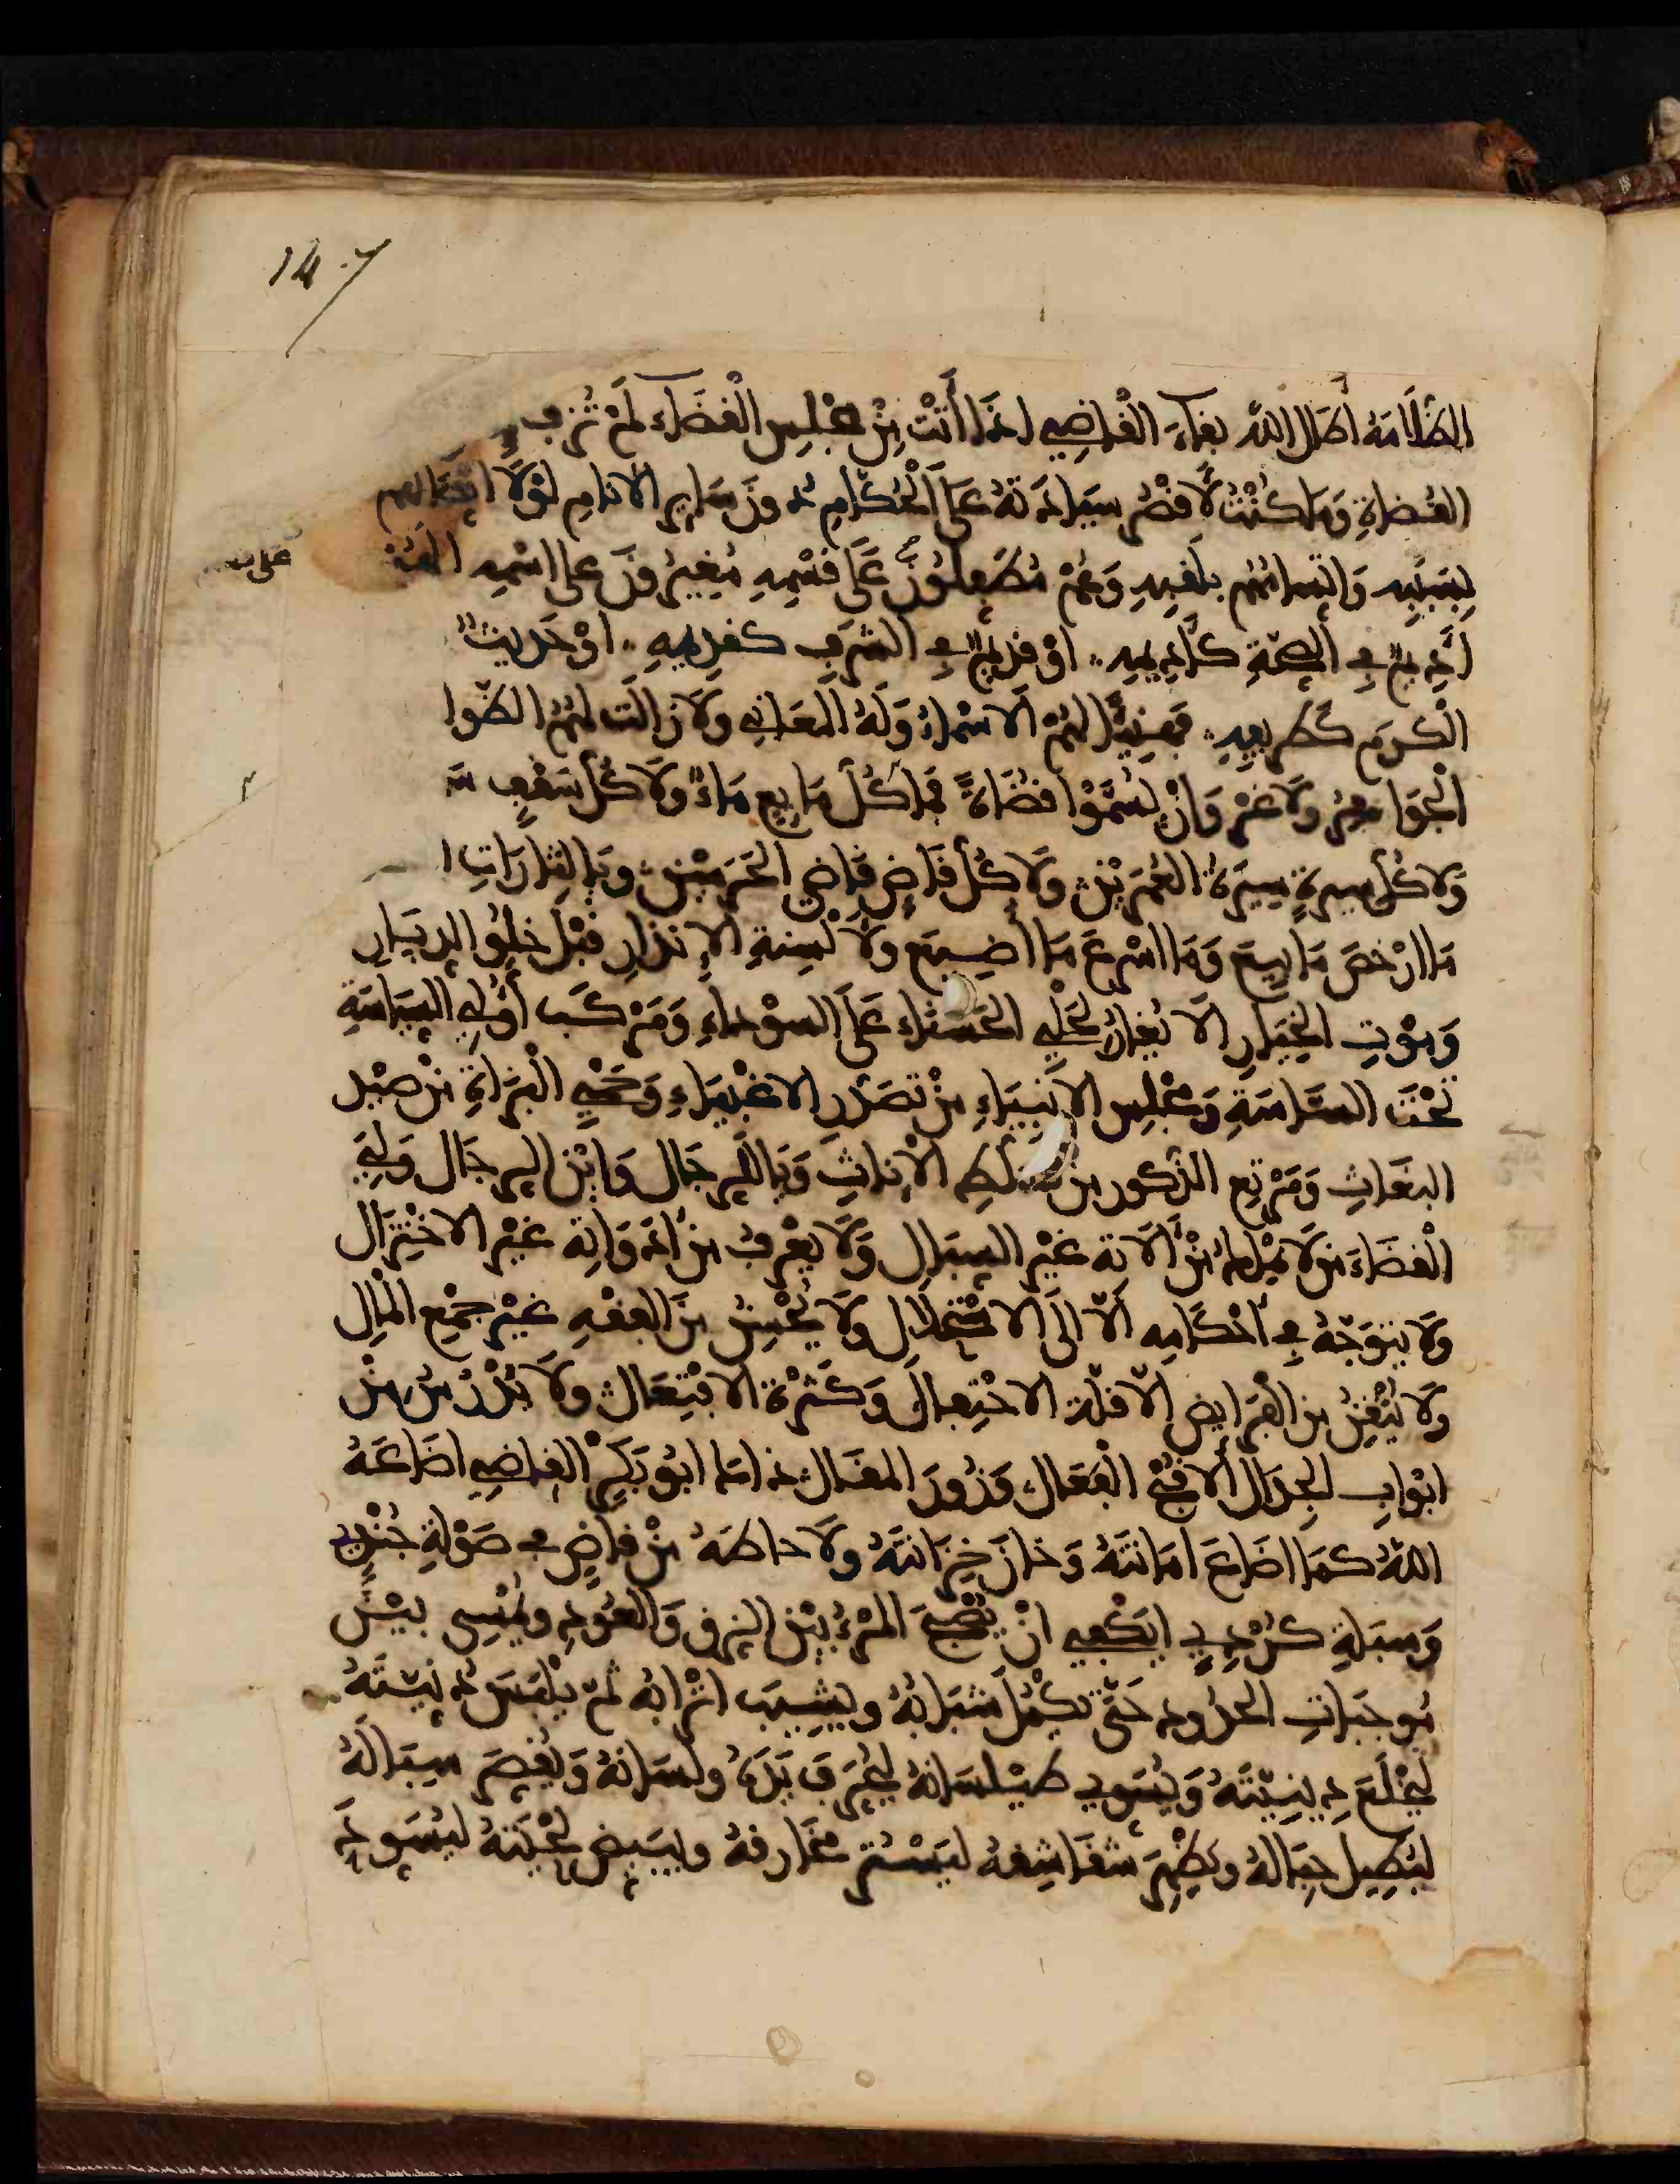 147
الظُّلَامَةُ أَطَالَ اللهُ بَقَاءَ الْقَاضِي إِذَا أَتَتْ مِنْ مَجْلِسِ الْقَضَاءِ لَمْ تُرْقَ
الْقُضَاةِ وَمَا كُنْتُ لِأَقْصُرَ سِيَادَتَهُ عَلَى الْحُكَّامِ دُونَ سَايِرِ الْأَنَامِ لَوْلَا اتِّصَالُهُمْ
بِسَبَبِهِ وَاتِّسَامُهُمْ بِلَقَبِهِ وَهُمْ مُتَطَفِّلُونَ عَلَى قِسْمِهِ مُغِيرُونَ عَلَى اسْمِهِ
أَدِيمٌ فِي الصِّحَّةِ كَأَدِيمِهِ أَوْ قَدِيمٌ فِي الشَّرَفِ كَقَدِيمِهِ أَوْ حَدِيثٌ
الْكَرَمِ كَطَرِيقِهِ فَهَنِيئًا لَهُمُ الْأَسْمَاءُ وَلَهُ الْمَعَانِي وَلَا زَالَتْ لَهُمُ الظَّوَا
الْجَوَاهِرُ وَلَا غَرْوَ وَإِنْ سُمُّوا قُضَاةً فَمَا كُلُّ مَايِعٍ مَاءٌ وَلَا كُلُّ سَقْفٍ
وَلَا كُلُّ سِيرَةٍ سِيرَةُ الْعُمَرَيْنِ وَلَا كُلُّ قَاضٍ قَاضِي الْحَرَمَيْنِ وَيَا لَثَارَاتِ
مَا أَرْخَصَ مَا بِيعَ وَمَا أَسْرَعَ مَا أُضِيعَ وَلَا لْسِنَةِ الْإِنْذَارِ قَبْلَ خُلُوِّ الدِّيَارِ
وَمَوْتِ الْخِيَارِ أَلَا يُغَارُ لِحَلْيِ الْحَسْنَاءِ عَلَى السَّوْدَاءِ وَمَرْكَبِ أُولِي السِّيَاسَةِ
تَحْتَ السَّاسَةِ وَمَجْلِسِ الْأَنْبِيَاءِ مِنْ تَصَدُّرِ الْأَغْبِيَاءِ وَحَمْيِ الْبُزَاةِ مِنْ صَيْدِ
الْبُغَاثِ وَمَرْتَعِ الذُّكُورِ مِنْ تَسَلُّطِ الْإِنَاثِ وَيَا لَلرِّجَالِ وَأَيْنَ الرِّجَالُ وَلِيَ
الْقَضَاءَ مَنْ لَا يَمْلِكُ مِنْ آلَاتِهِ غَيْرَ السِّبَالِ وَلَا يَعْرِفُ مِنْ أَدَوَاتِهِ غَيْرَ الِاخْتِزَالِ
وَلَا يَتَوَجَّهُ فِي أَحْكَامِهِ إِلَّا إِلَى الِاسْتِحْلَالِ وَلَا يُحْسِنُ مِنَ الْفِقْهِ غَيْرَ جَمْعِ الْمَالِ
وَلَا يُتْقِنُ مِنَ الْفَرَايِضِ إِلَّا قِلَّةَ الِاحْتِفَالِ وَكَثْرَةَ الِافْتِعَالِ وَلَا يَدْرُسُ مِنْ
أَبْوَابِ الْجِدَالِ إِلَّا قُبْحَ الْفَعَالِ وَزُورَ الْمَقَالِ ذَا مَا أَبُو بَكْرٍ الْقَاضِي أَضَاعَهُ
اللهُ كَمَا أَضَاعَ أَمَانَتَهُ وَخَانَ خِزَانَتَهُ وَلَا حَاطَهُ مِنْ قَاضٍ فِي صَوْلَةِ جُنْدِيٍّ
وَسَبَلَةِ كُرْدِيٍّ أَيَكْفِي أَنْ يُصْبِحَ الْمَرْءُ بَيْنَ الزِّقِّ وَالْعُودِ وَيُمْسِي بَيْنَ
مُوجِبَاتِ الْحُدُودِ حَتَّى يَكْمُلَ شَبَابُهُ وَيَشِيبَ أَتْرَابُهُ ثُمَّ يَلْبَسُ دَنِّيَّتَهُ
لِيَخْلَعَ دِينِيَّتَهُ وَيُسَوِّي طَيْلَسَانَهُ لِيُحَرِّفَ يَدَهُ وَلِسَانَهُ وَيُقَصِّرَ سِبَالَهُ
لِيُطِيلَ حِبَالَهُ وَيُظْهِرَ شَقَاشِقَهُ لِيَسْتُرَ مَخَارِقَهُ وَيُبَيِّضَ لِحْيَتَهُ لِيُسَوِّدَ